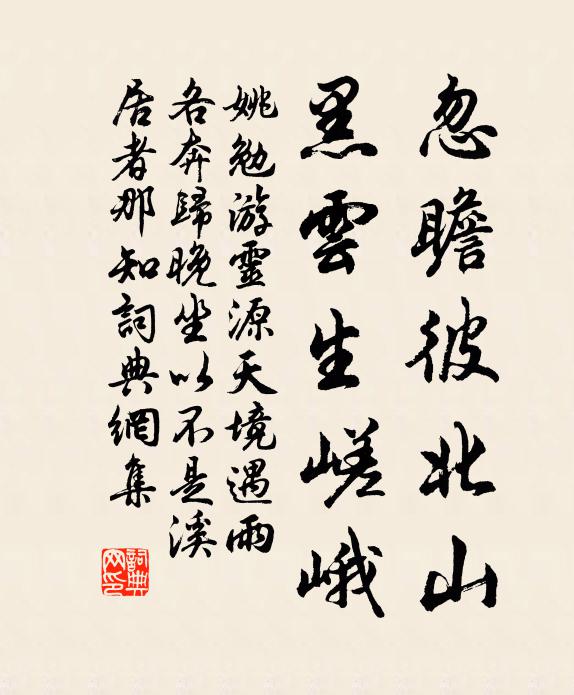 忽瞻彼北山
黑雲生嵯峨
姚勉游靈源天境遇雨
各奔歸晚坐以不是溪
居者那知詞典網集
詞典網印